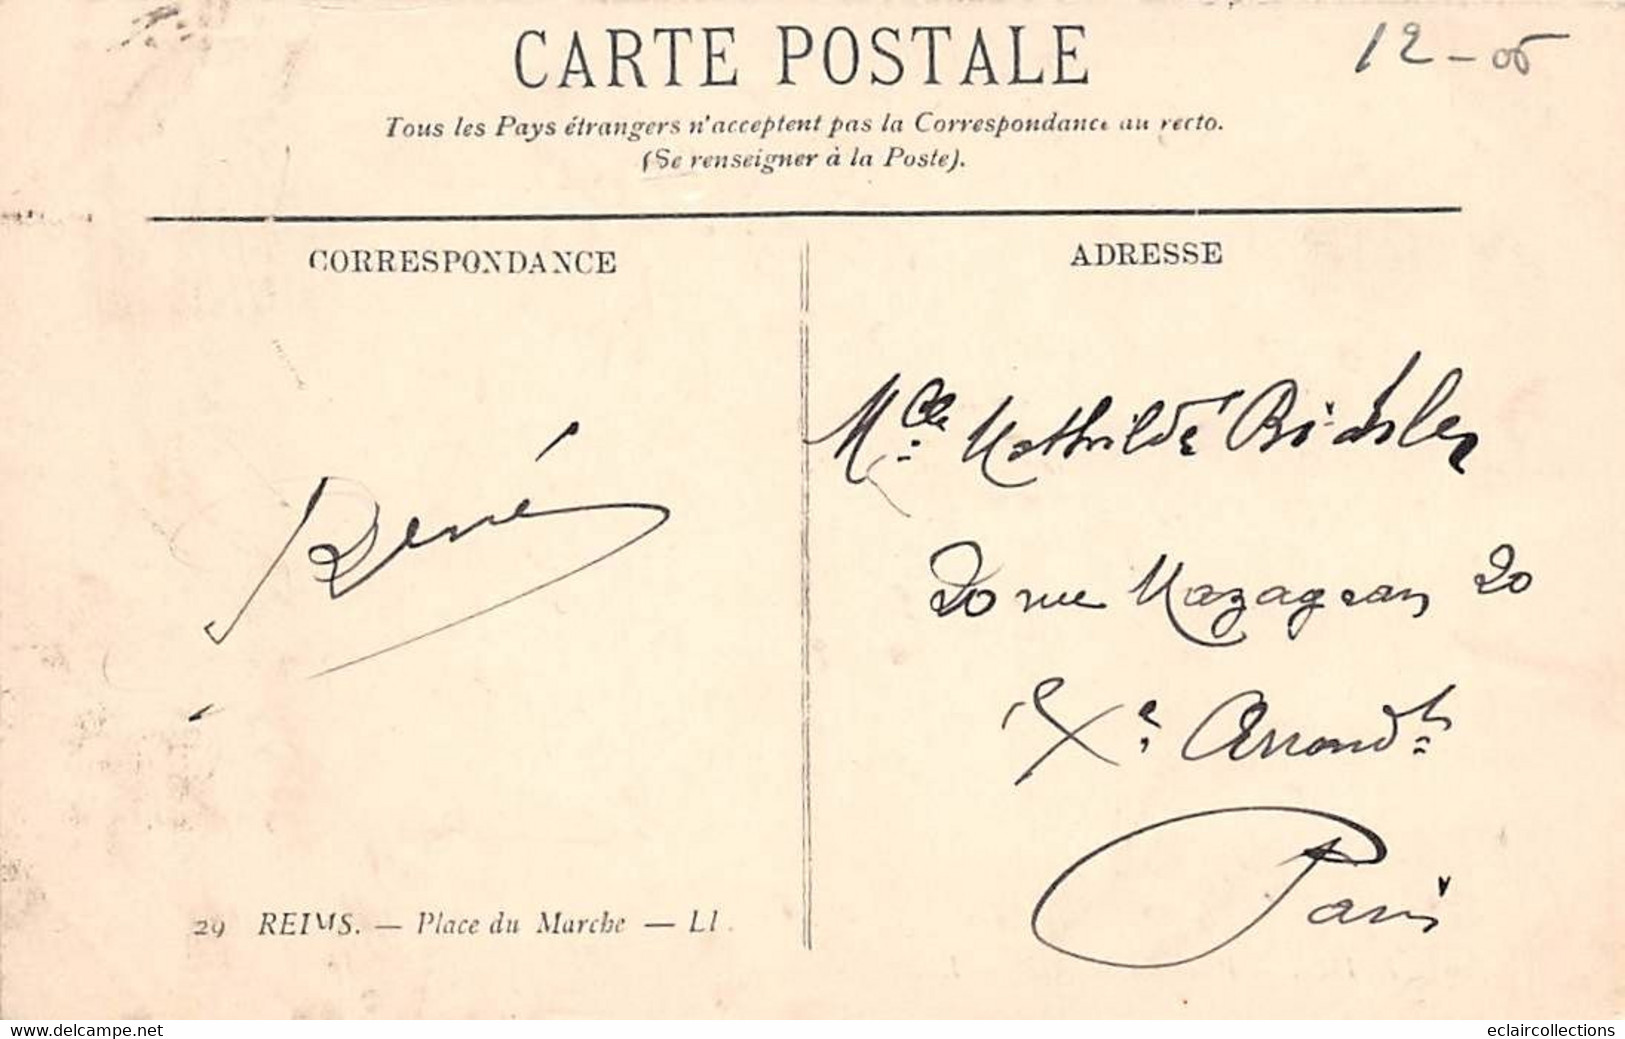 CARTE POSTALE
12 - 05
Tous les Pays étrangers n'acceptent pas la Correspondance au recto.
(Se renseigner à la Poste).
CORRESPONDANCE
René
29 REIMS. — Place du Marche — LL.
ADRESSE
Melle Mathilde
20 rue Mazagran 20
Xe Arrondt
Paris
www.delcampe.net
eclaircollections